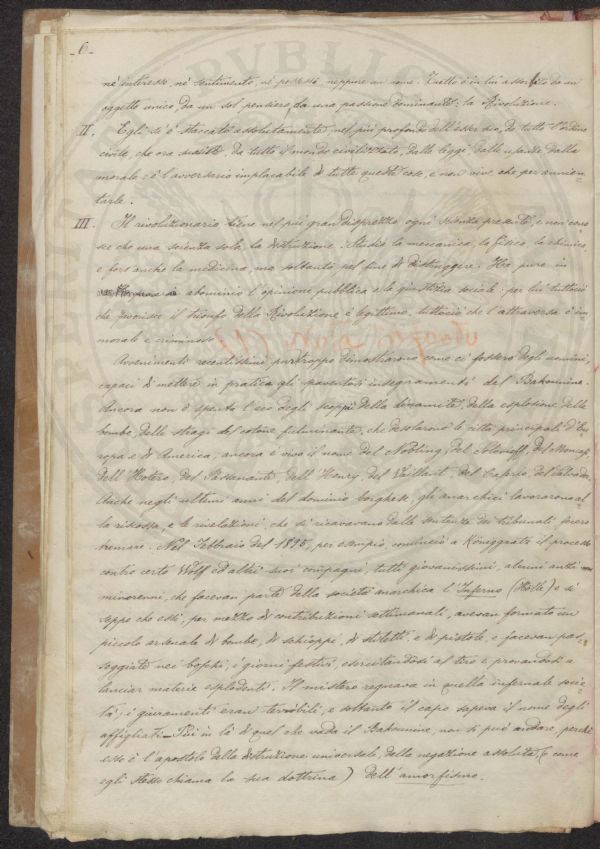 -6-
nè interesse, nè sentimento, nè possesso, neppure un nome. Tutto è in lui assorbito da un
oggetto unico, da un sol pensiero, da una passione dominante: la Rivoluzione.
II. Egli si è staccato assolutamente, nel più profondo dell'esser suo, da tutto l'ordine
civile, che ora sussiste, da tutto il mondo civilizzato, dalle leggi, dalle usanze, dalla
morale: è l'avversario implacabile di tutte queste cose, e non vive che per annien-
tarle.
III. Il rivoluzionario tiene nel più gran disprezzo ogni scienza presente, e non cono
sce che una scienza sola, la distruzione. Studia la meccanica, la fisica, la chimica
e fors'anche la medicina, ma soltanto pel fine di distruggere. Ha pure in
abominio l'opinione pubblica e la giustizia sociale: per lui tuttociò
che favorisce il trionfo della Rivoluzione è legittimo, tuttociò che l'attraversa è im
morale e criminoso.
Avvenimenti recentissimi purtroppo dimostrarono come ci fossero degli uomini,
capaci di mettere in pratica gli spaventosi insegnamenti del Bakounine.
Ancora non è spento l'eco degli scoppi della dinamite, della esplosione delle
bombe, delle stragi del cotone fulminante, che desolarono le città principali d'Eu
ropa e di America; ancora è vivo il nome del Nobiling, del Solovieff, del Moncasi,
dell'Hotero, del Passanante, dell'Henry, del Vaillant, del Caserio, del Salvador.
Anche negli ultimi anni del dominio borghese, gli anarchici lavoraron al
la riscossa, e le rivelazioni, che si ricavavano dalle sentenze dei tribunali, fecero
tremare. Nel Febbraio del 1895, per esempio, cominciò a Königgratz il processo
contro certo Wolf ed altri suoi compagni, tutti giovanissimi, alcuni anzi
minorenni, che facevan parte della società anarchica l'Inferno (Hölle) e si
seppe che essi, per mezzo di contribuzioni settimanali, avevan formato un
piccolo arsenale di bombe, di schioppi, di stiletti e di pistole, e facevan pas-
seggiate nei boschi, i giorni festivi, esercitandosi al tiro e provandosi a
lanciar materie esplodenti. Il mistero regnava in quella infernale socie-
tà; i giuramenti eran terribili, e soltanto il capo sapeva il nome degli
affigliati. Più in là di quel che vada il Bakounine, non si può andare, perchè
esso è l'apostolo della distruzione universale, della negazione assoluta, (o come
egli stesso chiama la sua dottrina) dell'amorfismo.